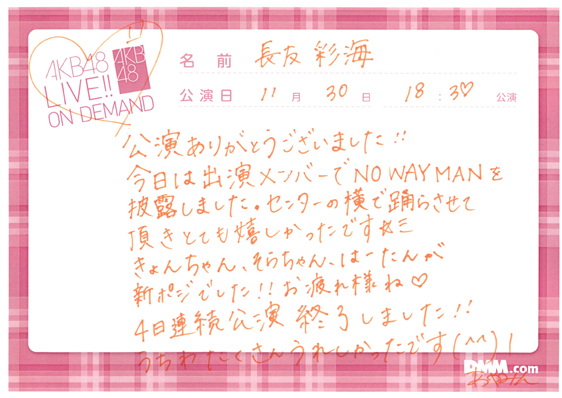 AKB48
LIVE!!
ON DEMAND
AKB
48
名前 長友彩海
公演日 11月30日 18:30公演
公演ありがとうございました!!
今日は出演メンバーでNO WAY MANを
披露しました。センターの横で踊らさせて
頂きとても嬉しかったです
きょんちゃん、そらちゃん、はーたんが
新ポジでした!!お疲れ様ね♡
4日連続公演 終了しました!!
うちわたくさんうれしかったです(^^)!
DMM.com